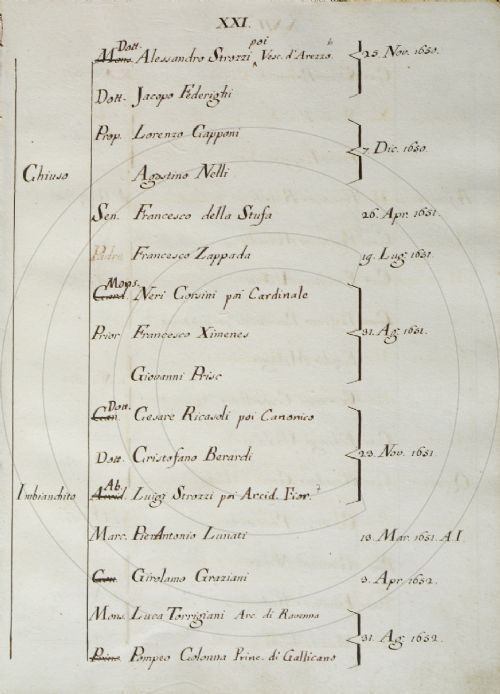 XXI.
Dott. poi
Mons. Alessandro Strozzi Vesc. d'Arezzo. 25. Nov. 1650.
Dott. Jacopo Federighi
Prop. Lorenzo Capponi
7. Dic. 1650.
Chiuso Agostino Nelli
Sen. Francesco della Stufa 26. Apr. 1651.
Padre Francesco Zappada 19. Lug. 1651.
Mons.
Neri Corsini poi Cardinale
Prior Francesco Ximenes 31. Ag. 1651.
Giovanni Prisc
Dott.
Can. Cesare Ricasoli poi Canonico
Dott. Cristofano Berardi 23. Nov. 1651.
Ab.
Imbianchito Arcid. Luigi Strozzi poi Arcid. Fior.
Marc. Pierantonio Lunati 13. Mar. 1651. A.I.
Girolamo Graziani 3. Apr. 1652.
Mons. Luca Torrigiani Arc. di Ravenna
31. Ag. 1652.
Princ. Pompeo Colonna Princ. di Gallicano